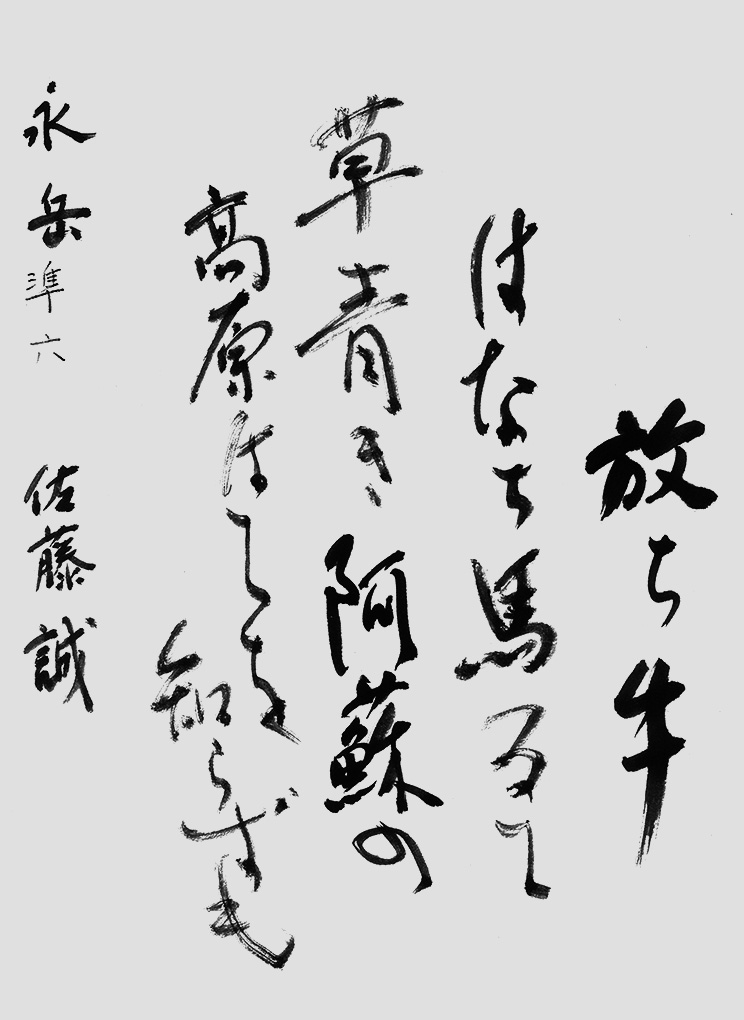 放ち牛
はなち馬ゐて
草青き阿蘇の
高原はてを知らずも
永岳 準六 佐藤誠